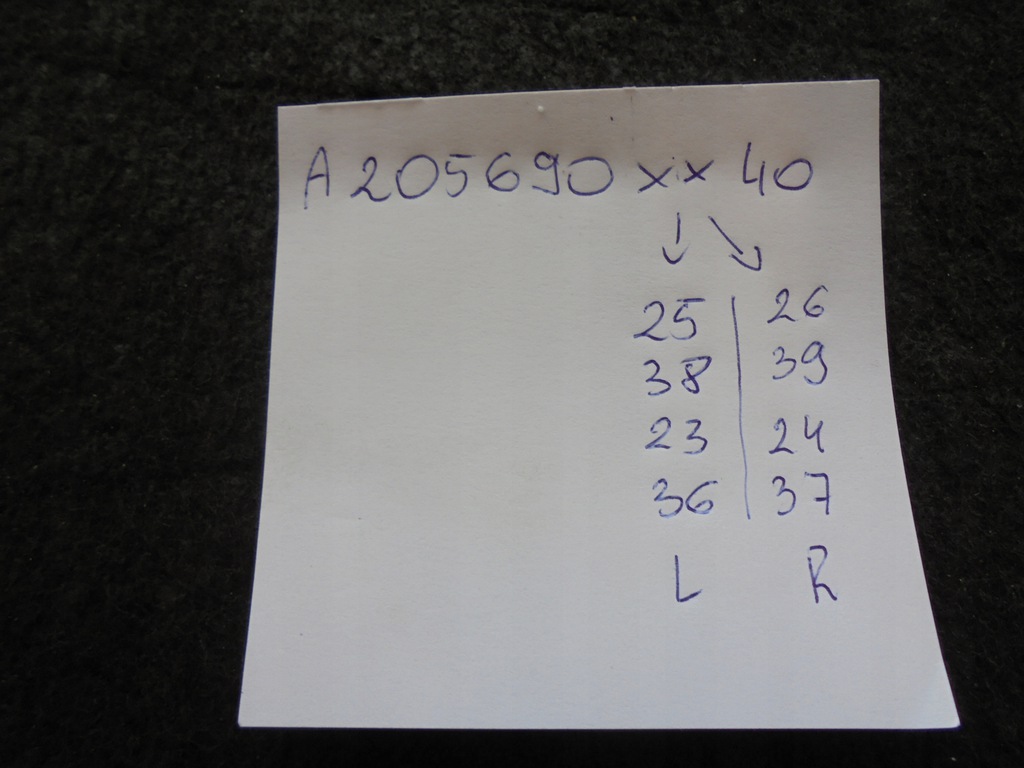 A205690xx40
↓ ↘
25 | 26
38 | 39
23 | 24
36 | 37
L R